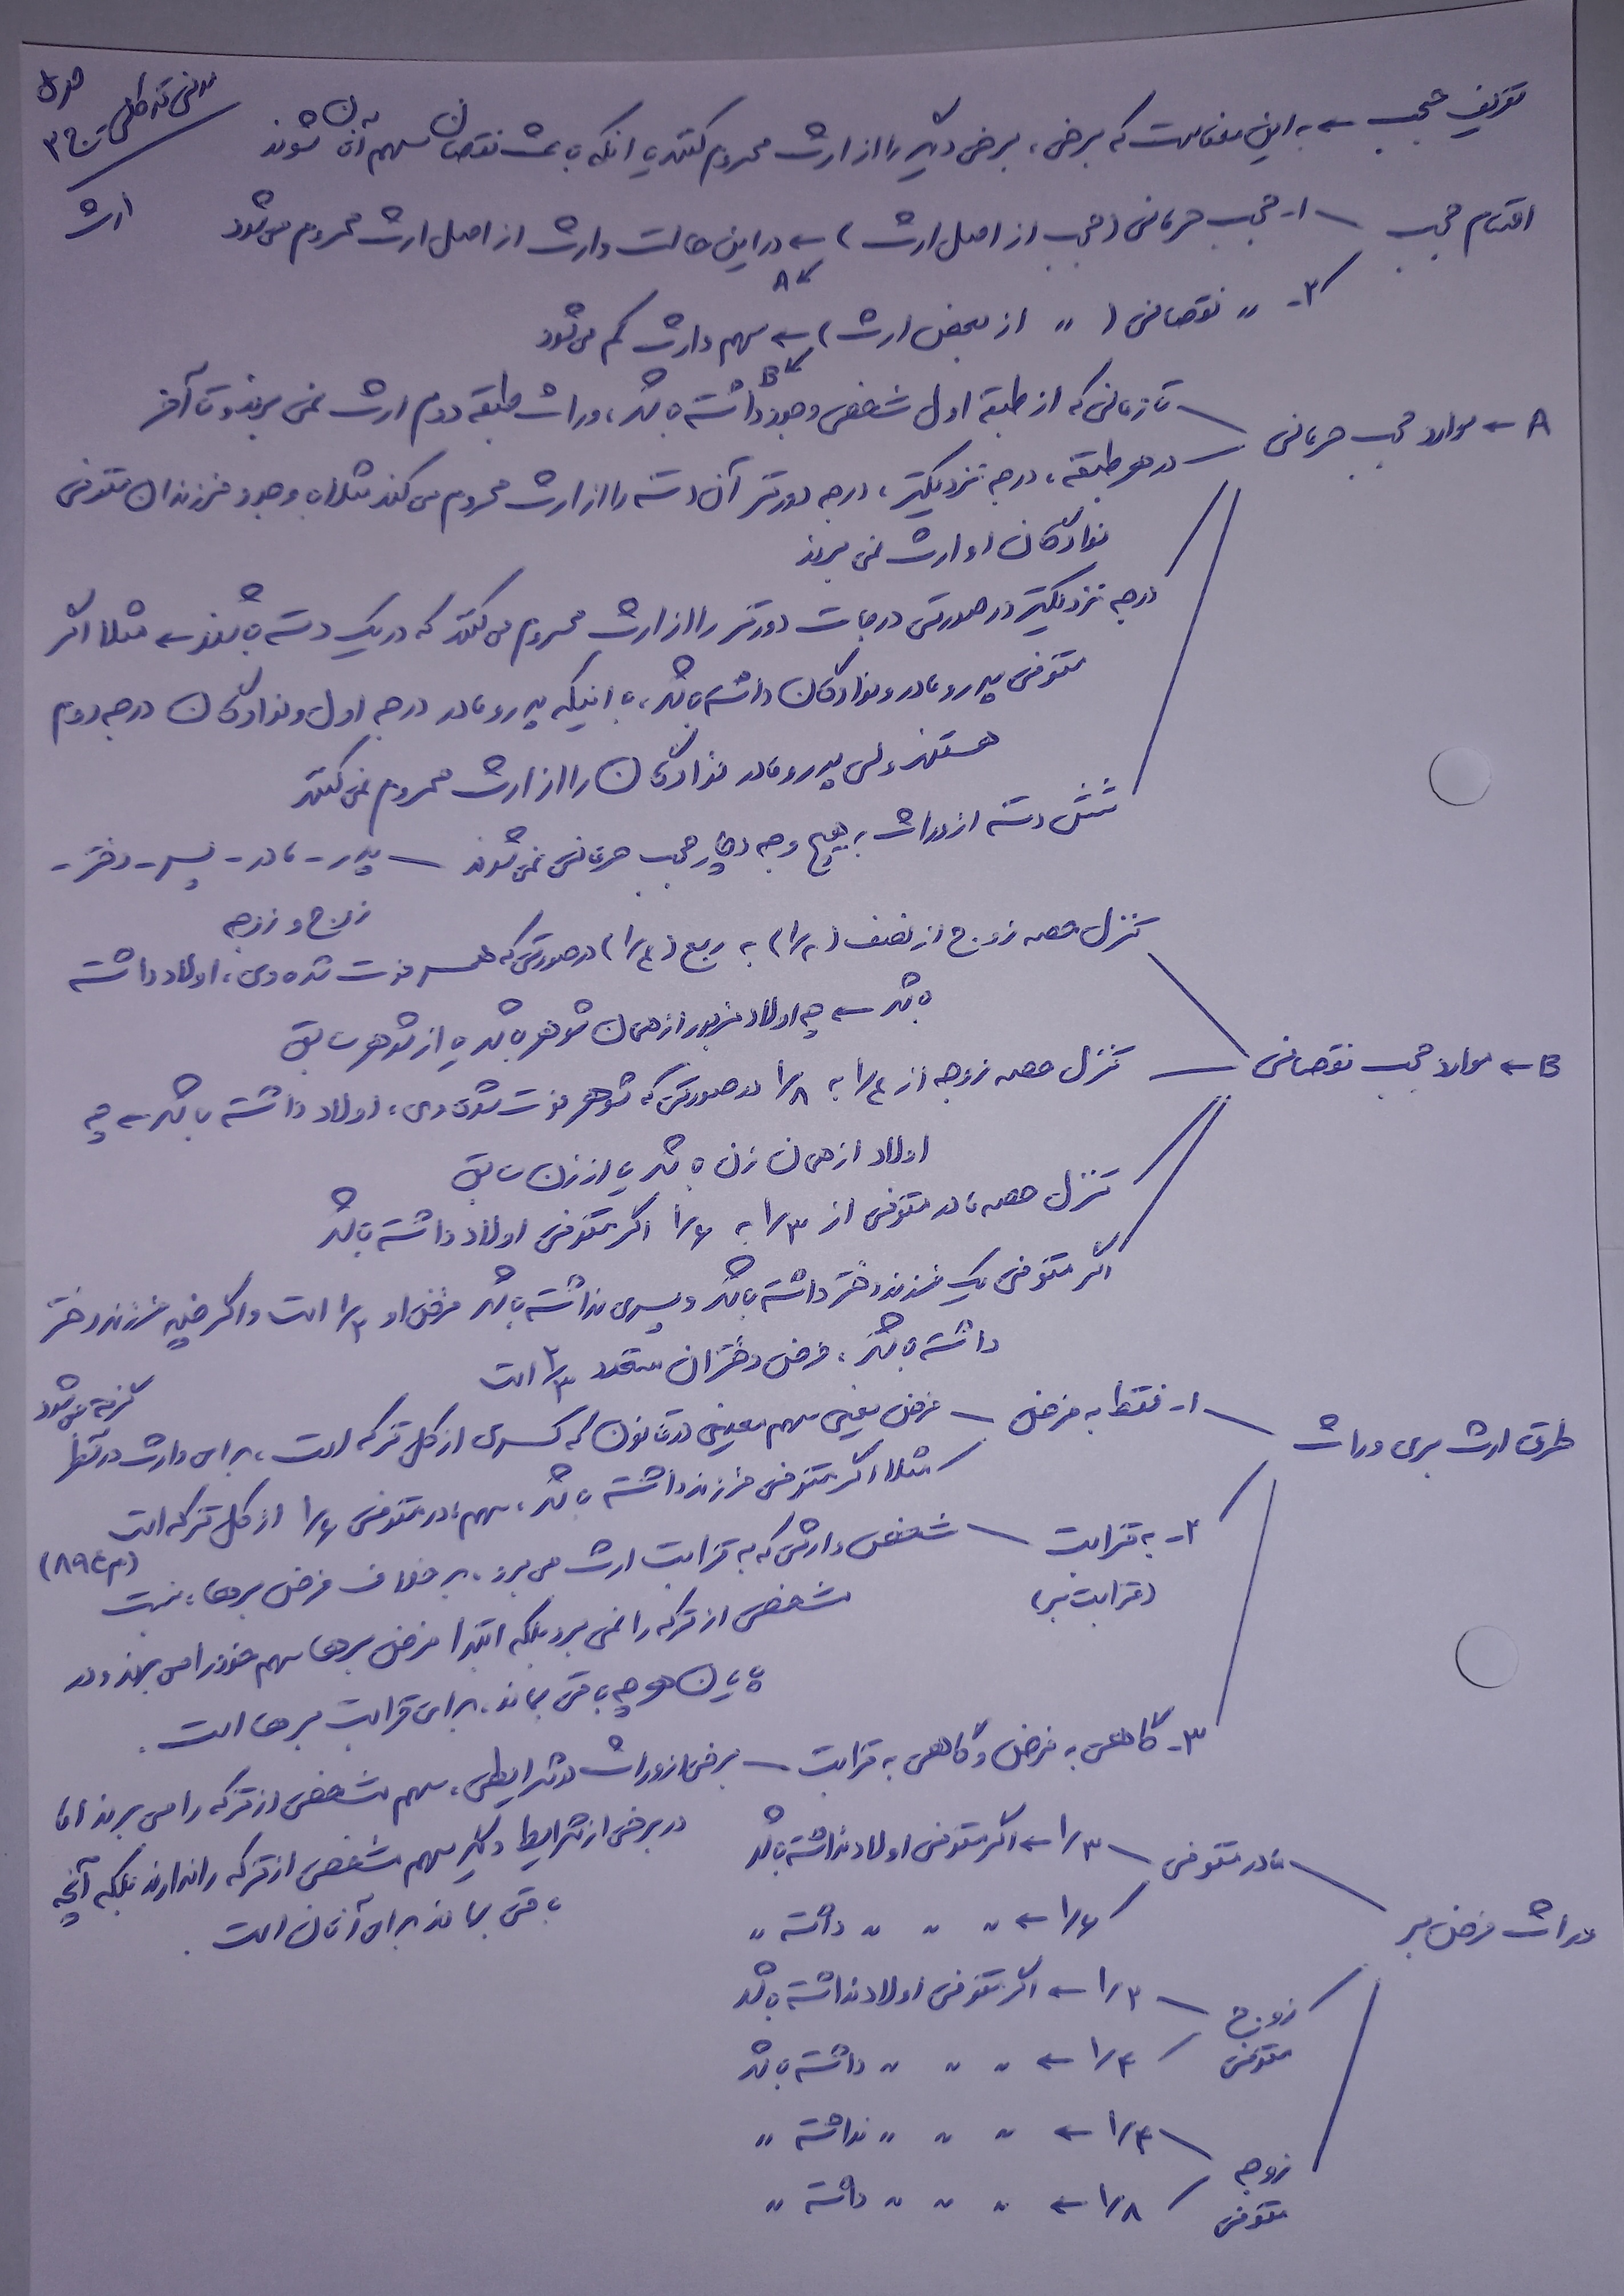 مدنی توکلی ج ۳
ارث
تعریف حجب ← به این معناست که برخی، برخی دیگر را از ارث محروم کنند یا انکه باعث نقصان سهم آنان شوند
اقسام حجب ۱- حجب حرمانی (حجب از اصل ارث) ← در این حالت وارث از اصل ارث محروم می‌شود
A
۲- 〃 نقصانی (〃 از بعض ارث) ← سهم وارث کم می‌شود
B
A ← موارد حجب حرمانی تا زمانی که از طبقه اول شخص وجود داشته باشد، وراث طبقه دوم ارث نمی برند و تا آخر
در هر طبقه، درجه نزدیکتر، درجه دورتر آن دسته را از ارث محروم می کند مثلا با وجود فرزندان متوفی
نوادگان او ارث نمی برند
درجه نزدیکتر در صورتی درجات دورتر را از ارث محروم می کند که در یک دسته باشند ← مثلا اگر
متوفی پدر و مادر و نوادگان داشته باشد، با اینکه پدر و مادر درجه اول و نوادگان درجه دوم
هستند ولی پدر و مادر نوادگان را از ارث محروم نمی کنند
شش دسته از وراث به هیچ وجه دچار حجب حرمانی نمی شوند — پدر - مادر - پسر - دختر -
زوج و زوجه
B ← موارد حجب نقصانی تنزل حصه زوج از نصف (۱/۲) به ربع (۱/۴) در صورتی که همسر فوت شده وی، اولاد داشته
باشد ← چه اولاد مزبور از همان شوهر باشد یا از شوهر سابق
تنزل حصه زوجه از ۱/۴ به ۱/۸ در صورتی که شوهر فوت شده وی، اولاد داشته باشد ← چه
اولاد از همان زن باشد یا از زن سابق
تنزل حصه مادر متوفی از ۱/۳ به ۱/۶ اگر متوفی اولاد داشته باشد
اگر متوفی یک فرزند دختر داشته باشد و پسری نداشته باشد فرض او ۱/۲ است و اگر چند فرزند دختر
داشته باشد، فرض دختران متعدد ۲/۳ است
طرق ارث بری وراث ۱- فقط به فرض — فرض یعنی سهم معینی در قانون که کسری از کل ترکه است، برای وارث در نظر گرفته می‌شود
مثلا اگر متوفی فرزند داشته باشد، سهم مادر متوفی ۱/۶ از کل ترکه است
۲- به قرابت (قرابت بر) — شخص وارثی که به قرابت ارث می برد، بر خلاف فرض برها، نسبت (م ۸۹۴)
مشخصی از ترکه را نمی برد بلکه ابتدا فرض برها سهم خود را می برند و در
پایان هر چه باقی بماند، برای قرابت برها است.
۳- گاهی به فرض و گاهی به قرابت — برخی از وراث در شرایطی، سهم مشخصی از ترکه را می برند اما
در برخی از شرایط دیگر سهم مشخصی از ترکه را ندارند بلکه آنچه
باقی بماند برای آنان است.
وراث فرض بر مادر متوفی ۱/۳ ← اگر متوفی اولاد نداشته باشد
۱/۶ ← 〃 〃 〃 داشته 〃
زوج متوفی ۱/۲ ← اگر متوفی اولاد نداشته باشد
۱/۴ ← 〃 〃 〃 داشته باشد
زوجه متوفی ۱/۴ ← 〃 〃 〃 نداشته 〃
۱/۸ ← 〃 〃 〃 داشته 〃